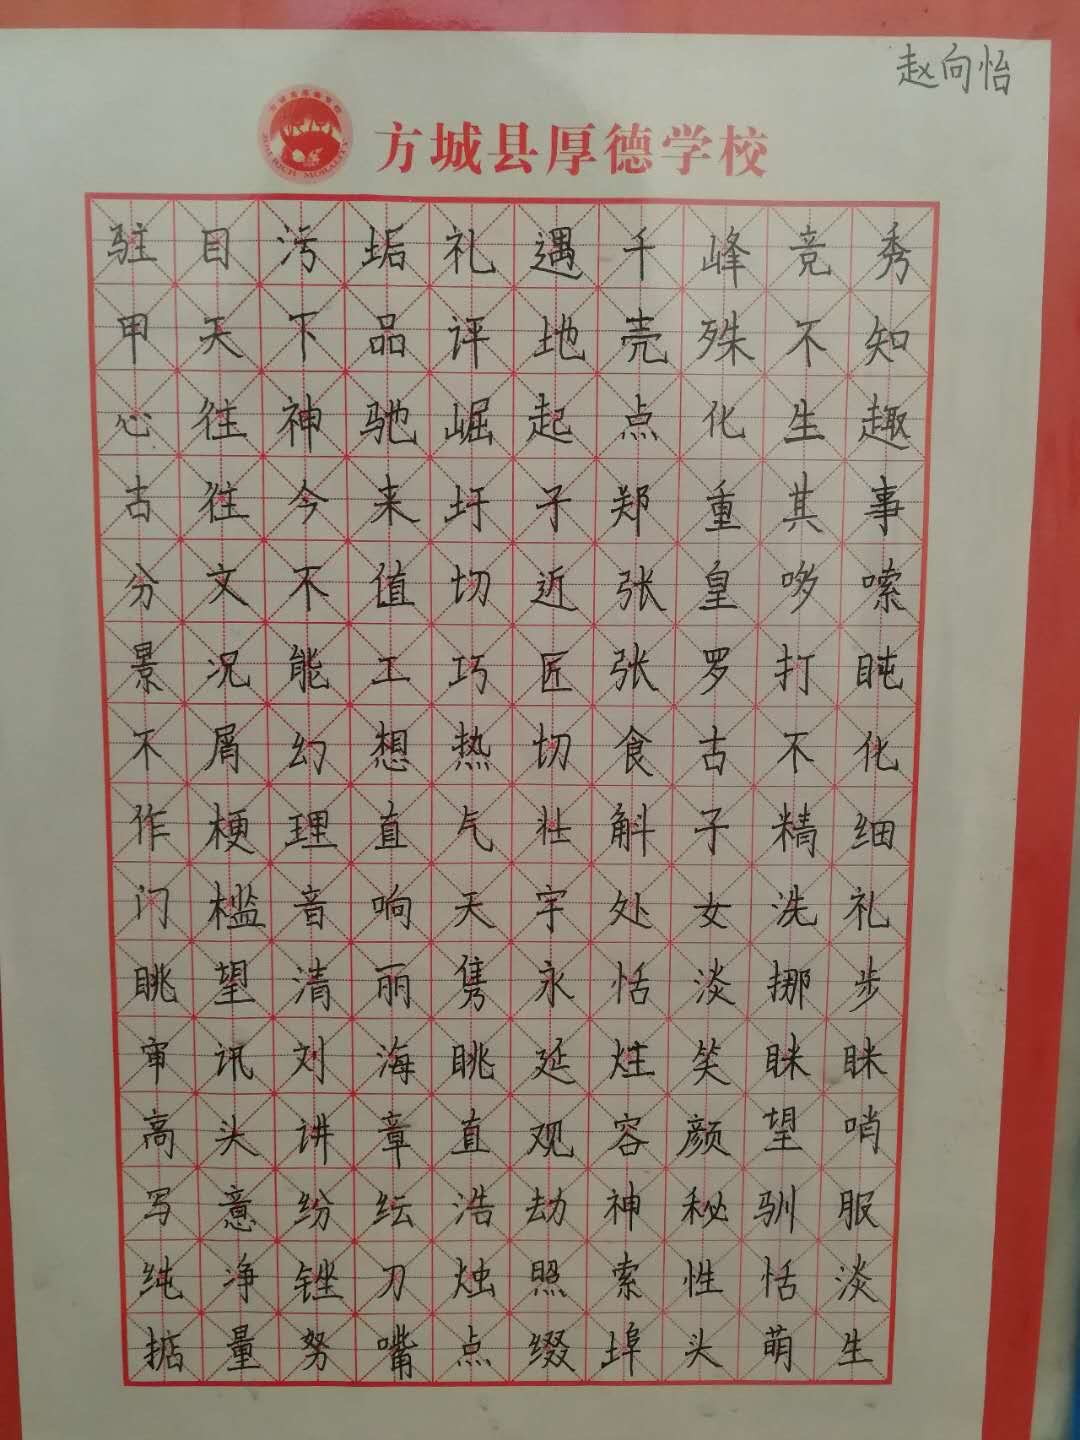 赵向怡
方城县厚德学校
驻目污垢礼遇千峰竞秀
甲天下品评地壳殊不知
心往神驰崛起点化生趣
古往今来圩子郑重其事
分文不值切近张皇哆嗦
景况能工巧匠张罗打盹
不屑幻想热切食古不化
作梗理直气壮斛子精细
门槛音响天宇处女洗礼
眺望清丽隽永恬淡挪步
审讯刘海眺延炷笑眯眯
高头讲章直观容颜望哨
写意纷纭浩劫神秘驯服
纯净锉刀烛照索性恬淡
掂量努嘴点缀埠头萌生